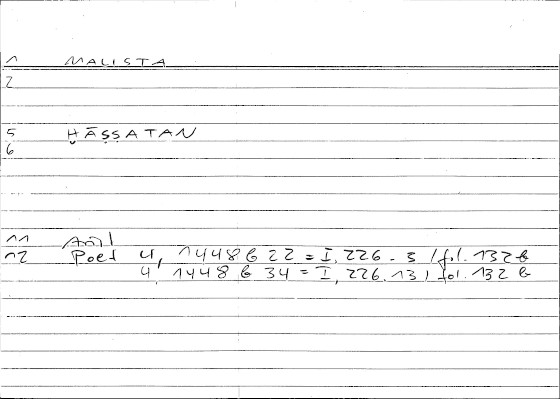 1 MALISTA
2
5 ḪĀṢṢATAN
6
11
12 Poet 4, 1448 b 22 = I, 226.5 / fol. 132 b
4, 1448 b 34 = I, 226.13 / fol. 132 b